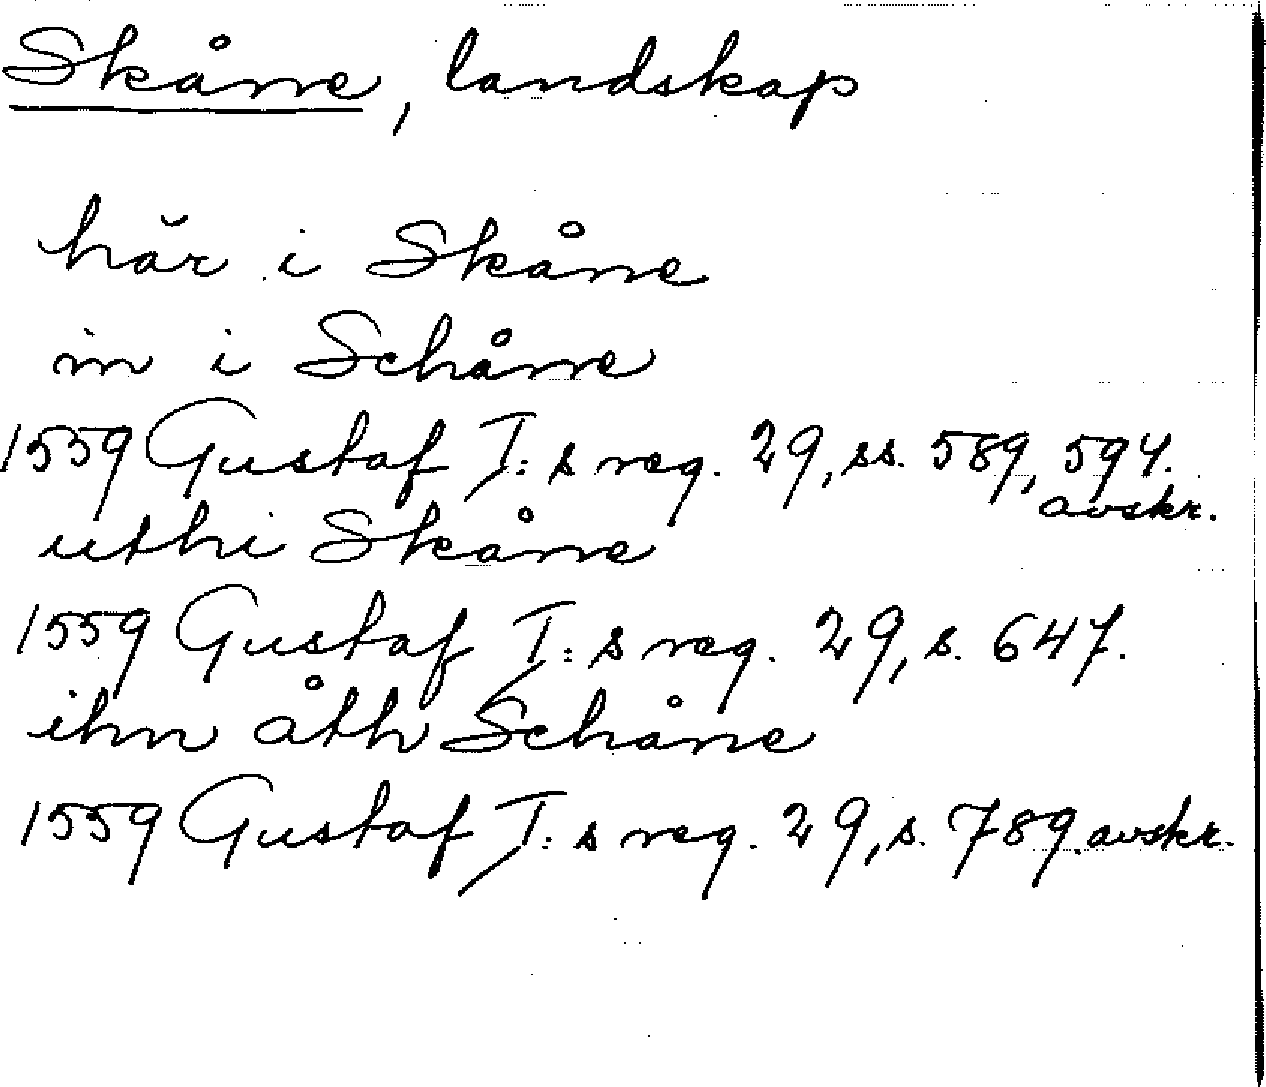 Skåne, landskap
här i Skåne
in i Schåne
1559 Gustaf I:s reg. 29, ss. 589, 594.
avskr.
uthi Skåne
1559 Gustaf I:s reg. 29, s. 647.
ihn åth Schåne
1559 Gustaf I:s reg. 29, s. 789. avskr.